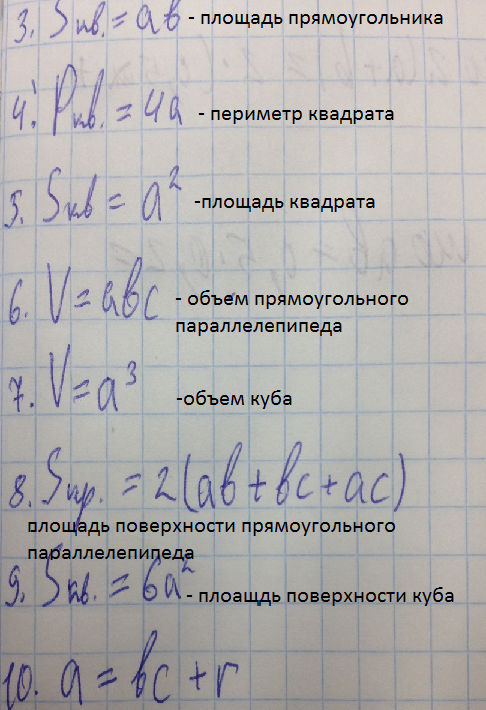 3. Sкв. = ab - площадь прямоугольника
4. Pкв. = 4a - периметр квадрата
5. Sкв = a² -площадь квадрата
6. V = abc - объем прямоугольного
параллелепипеда
7. V = a³ -объем куба
8. Sпр. = 2(ab+bc+ac)
площадь поверхности прямоугольного
параллелепипеда
9. Sкв. = 6a² - плоащдь поверхности куба
10. a = bc + r